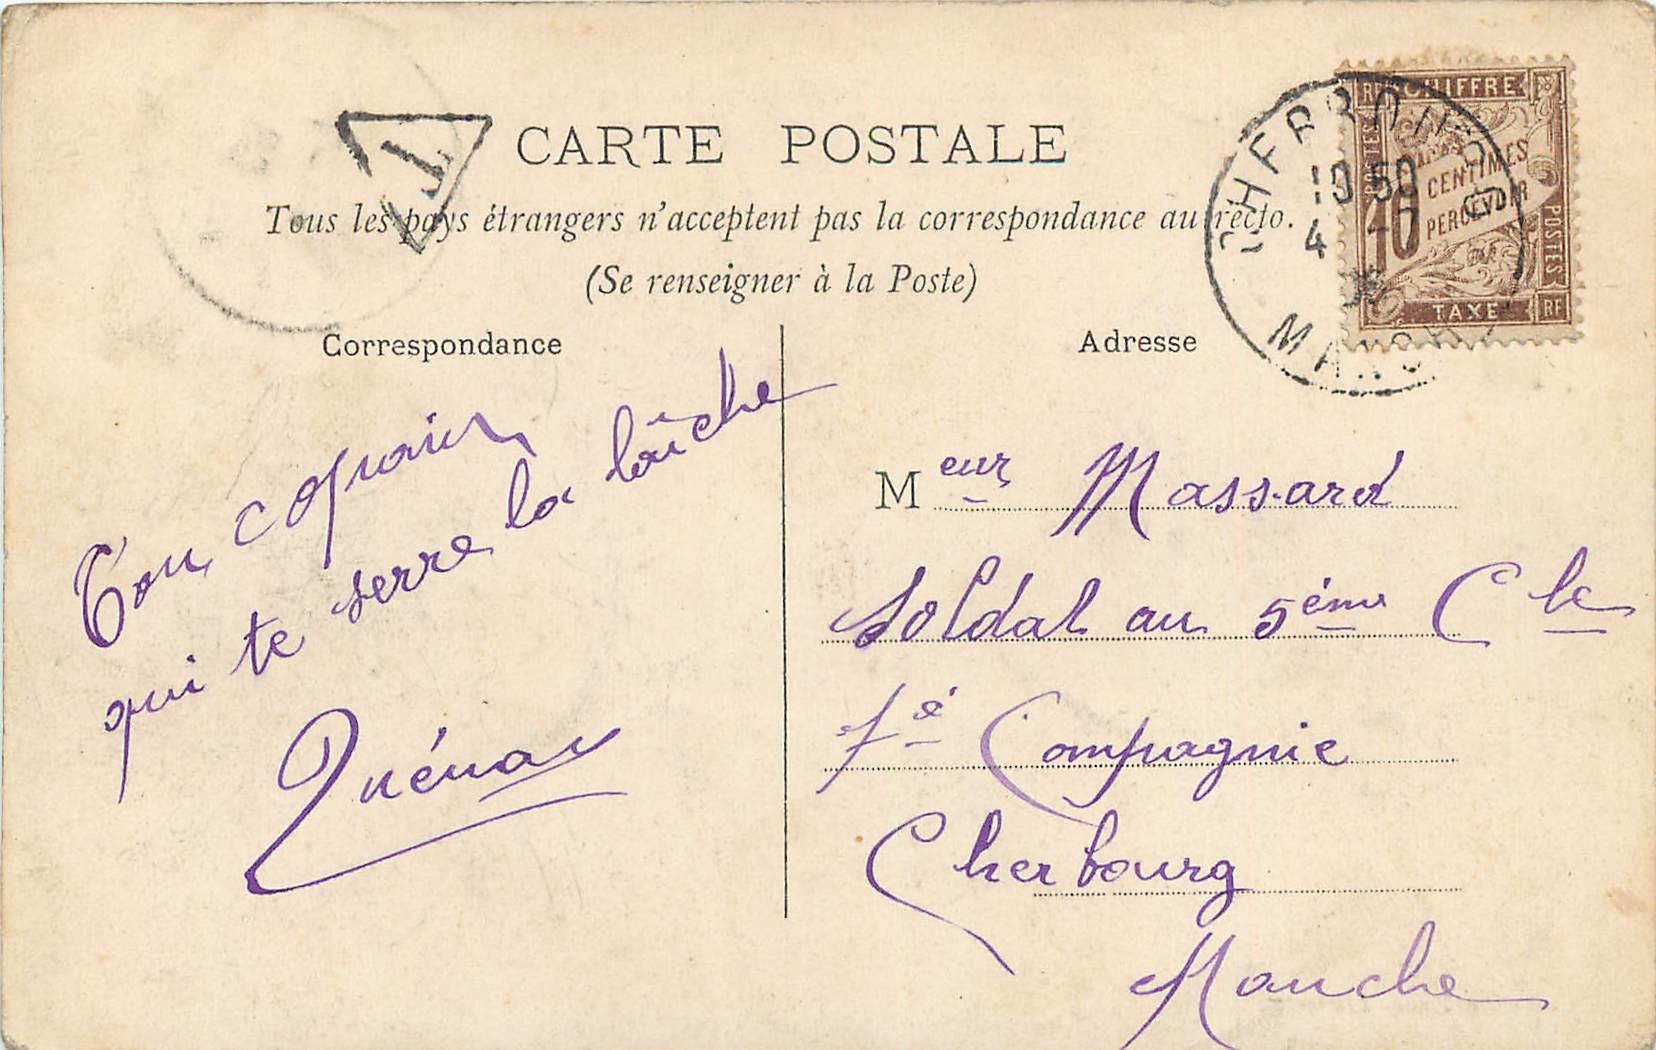 CARTE POSTALE
Tous les pays étrangers n'acceptent pas la correspondance au recto.
(Se renseigner à la Poste)
T
CHERBOURG
10 50
4 - 7
MANCHE
RF CHIFFRE
POSTES
10 CENTIMES
À
PERCEVOIR
POSTES
TAXE RF
Correspondance
Ton copain
qui te serre la louche
Quénau
Adresse
Meur Massard
Soldat au 5ème C le
7é Compagnie
Cherbourg
Manche